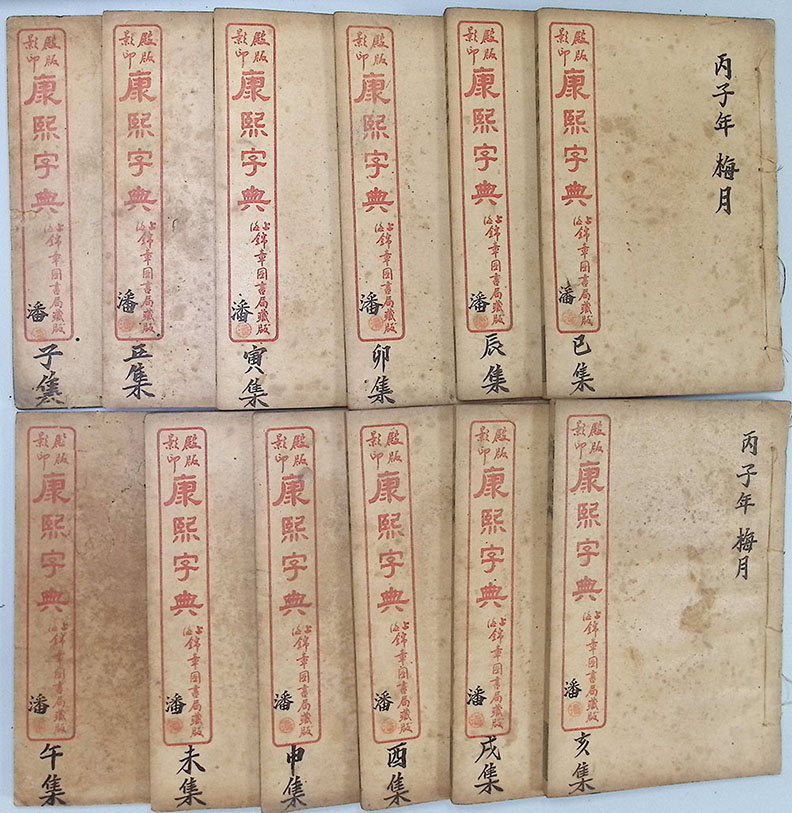 殿版
影印
康熙字典
上海
錦章圖書局藏版
潘
子集
殿版
影印
康熙字典
上海
錦章圖書局藏版
潘
丑集
殿版
影印
康熙字典
上海
錦章圖書局藏版
潘
寅集
殿版
影印
康熙字典
上海
錦章圖書局藏版
潘
卯集
殿版
影印
康熙字典
上海
錦章圖書局藏版
潘
辰集
丙子年 梅月
殿版
影印
康熙字典
上海
錦章圖書局藏版
潘
巳集
殿版
影印
康熙字典
上海
錦章圖書局藏版
潘
午集
殿版
影印
康熙字典
上海
錦章圖書局藏版
潘
未集
殿版
影印
康熙字典
上海
錦章圖書局藏版
潘
申集
殿版
影印
康熙字典
上海
錦章圖書局藏版
潘
酉集
殿版
影印
康熙字典
上海
錦章圖書局藏版
潘
戌集
丙子年 梅月
殿版
影印
康熙字典
上海
錦章圖書局藏版
潘
亥集